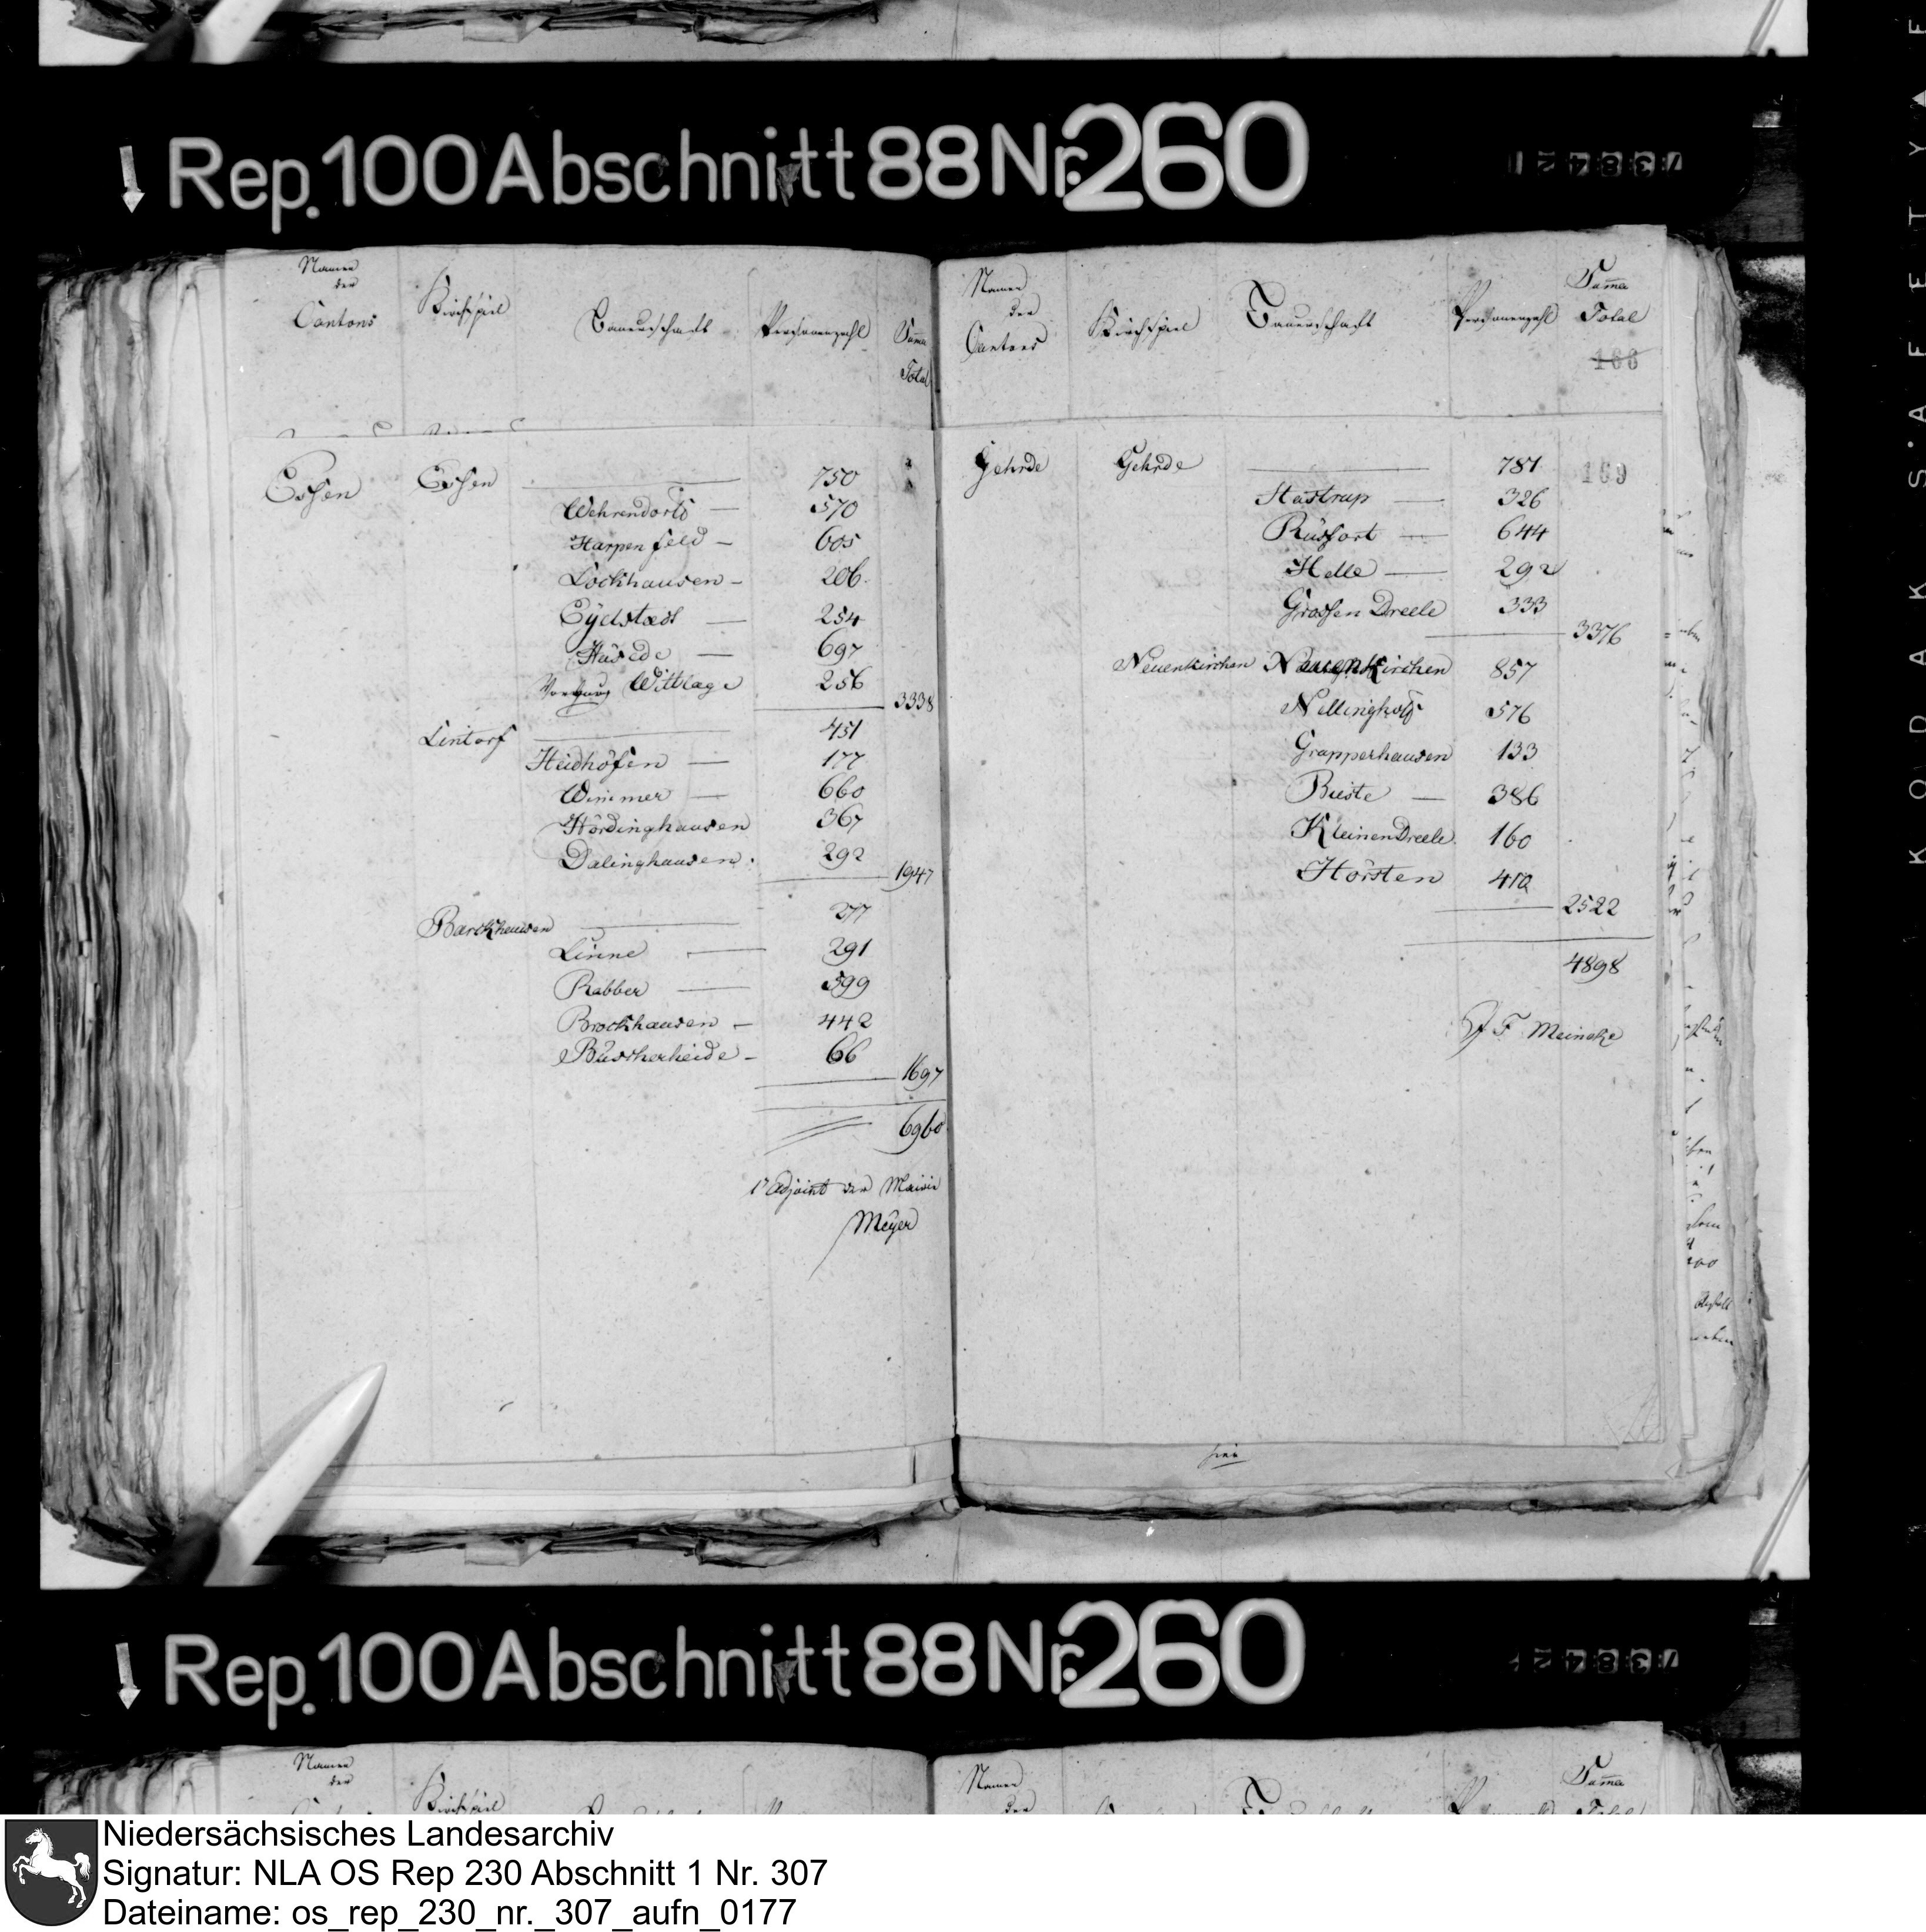 Rep. 100 Abschnitt 88 Nr. 260
Namen
der
Cantons
Kirchspiel
Bauerschaft
Personenzahl
Summa
Total
Essen Essen 750
Wehrendorf 570
Harpenfeld 605
Lockhausen 206
Eÿelstaedt 254
Hüsede 697
Wittlage 256
3338
Lintorf 451
Heidhöfen 177
Wimmer 660
Hördinghausen 367
Dalinghausen. 292
1947
Barckhausen 277
Linne 291
Rabber 599
Brockhausen 442
Büscherheide 66
1697
6960
1r Adjoint der Mairie
Meÿer
Namen
der
Cantons
Kirchspiel
Bauerschaft
Personenzahl
Summa
Total
168
Gehrde Gehrde 781
169
Hastrup 326
Rüsfort 644
Helle 292
Grossen Dreele 333
3376
Neuenkirchen Neuenkirchen 857
Nellinghoff 576
Grapperhausen 133
Bieste 386
Kleinen Dreele 160
Hörsten 410
2522
4898
F Meincke
hier
Rep. 100 Abschnitt 88 Nr. 260
Namen
der
Kirchspiel
Namen
der
Summa
Total
KODAK SAFETY
Niedersächsisches Landesarchiv
Signatur: NLA OS Rep 230 Abschnitt 1 Nr. 307
Dateiname: os_rep_230_nr._307_aufn_0177